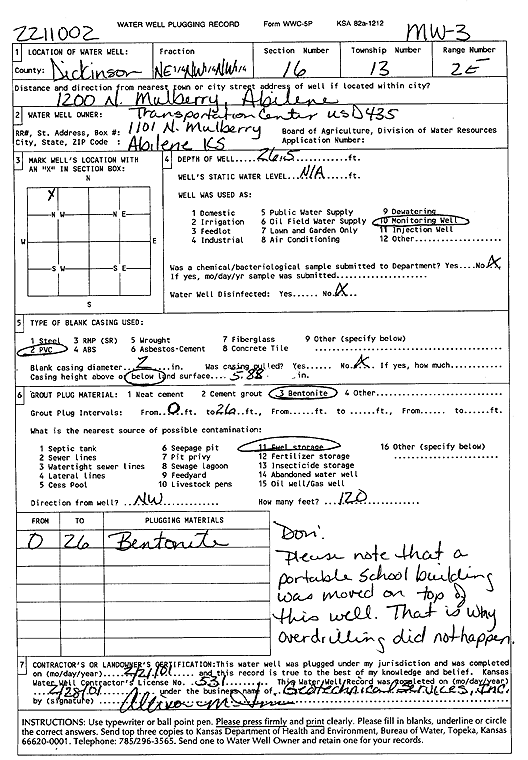 2211002
WATER WELL PLUGGING RECORD Form WWC-5P KSA 82a-1212
MW-3
1 LOCATION OF WATER WELL: Fraction Section Number Township Number Range Number
County: Dickinson NE 1/4 NW 1/4 NW 1/4 16 13 2E
Distance and direction from nearest town or city street address of well if located within city?
1200 N. Mulberry, Abilene
2 WATER WELL OWNER: Transportation Center USD435
RR#, St. Address, Box #: 1101 N. Mulberry Board of Agriculture, Division of Water Resources
City, State, ZIP Code : Abilene KS Application Number:
3 MARK WELL'S LOCATION WITH AN "X" IN SECTION BOX:
N
X
N W N E
W E
S W S E
S
4 DEPTH OF WELL.....26.5.....ft.
WELL'S STATIC WATER LEVEL...N/A
WELL WAS USED AS:
1 Domestic 5 Public Water Supply 9 Dewatering
2 Irrigation 6 Oil Field Water Supply 10 Monitoring Well
3 Feedlot 7 Lawn and Garden Only 11 Injection Well
4 Industrial 8 Air Conditioning 12 Other...............
Was a chemical/bacteriological sample submitted to Department? Yes....No.X
If yes, mo/day/yr sample was submitted...............
Water Well Disinfected: Yes..... No.X..
5 TYPE OF BLANK CASING USED:
1 Steel 3 RMP (SR) 5 Wrought 7 Fiberglass 9 Other (specify below)
2 PVC 4 ABS 6 Asbestos-Cement 8 Concrete Tile
Blank casing diameter...2....in. Was casing pulled? Yes...... No.X... If yes, how much........
Casing height above or below land surface....5.88.... in.
6 GROUT PLUG MATERIAL: 1 Neat cement 2 Cement grout 3 Bentonite 4 Other................
Grout Plug Intervals: From..0.ft. to 26..ft., From......ft. to .....ft., From...... to.......ft.
What is the nearest source of possible contamination:
1 Septic tank 6 Seepage pit 11 Fuel storage 16 Other (specify below)
2 Sewer lines 7 Pit privy 12 Fertilizer storage
3 Watertight sewer lines 8 Sewage lagoon 13 Insecticide storage
4 Lateral lines 9 Feedyard 14 Abandoned water well
5 Cess Pool 10 Livestock pens 15 Oil well/Gas well
Direction from well?..NW...... How many feet?..120.......
FROM TO PLUGGING MATERIALS
0 26 Bentonite
Don:
Please note that a
portable school building
was moved on top of
this well. That is why
overdrilling did not happen.
7 CONTRACTOR'S OR LANDOWNER'S CERTIFICATION: This water well was plugged under my jurisdiction and was completed
on (mo/day/year)....4/21/01....and this record is true to the best of my knowledge and belief. Kansas
Water Well Contractor's License No. ..531.... This Water Well Record was completed on (mo/day/year)
4/28/01 under the business name of Geotechnical Services, Inc.
by (signature)
INSTRUCTIONS: Use typewriter or ball point pen. Please press firmly and print clearly. Please fill in blanks, underline or circle
the correct answers. Send top three copies to Kansas Department of Health and Environment, Bureau of Water, Topeka, Kansas
66620-0001. Telephone: 785/296-3565. Send one to Water Well Owner and retain one for your records.